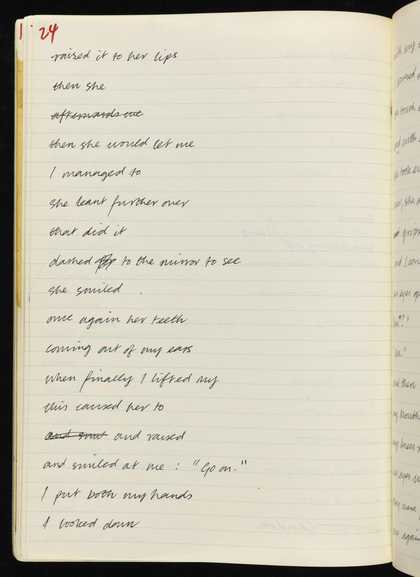 1. 24
raised it to her lips
then she
afterwards we
then she would let me
I managed to
she leant further over
that did it
dashed off to the mirror to see
she smiled.
once again her teeth
coming out of my ears
when finally I lifted my
this caused her to
and smil and raised
and smiled at me: "Go on."
I put both my hands
I looked down